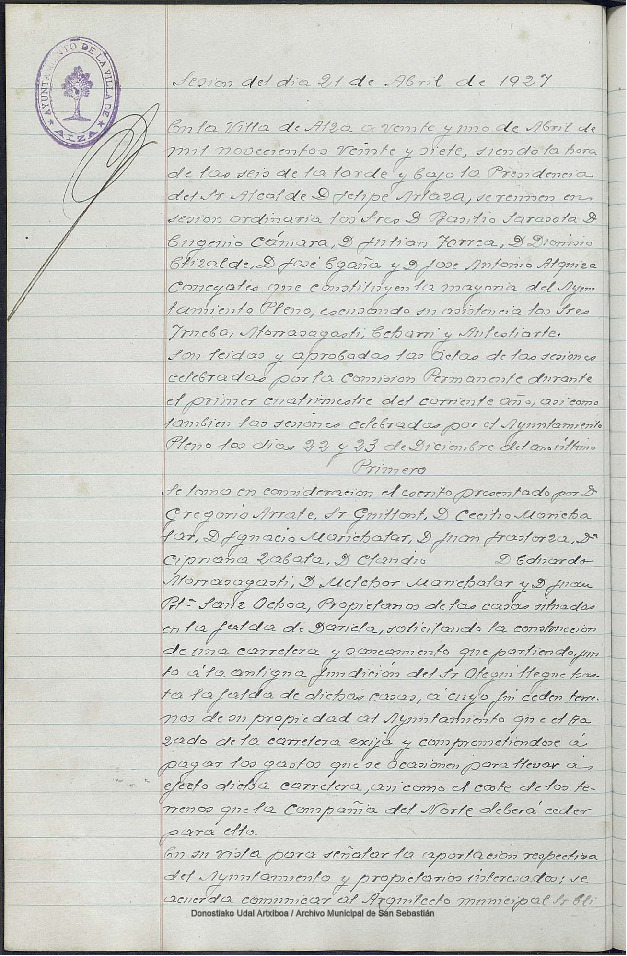 AYUNTAMIENTO DE LA VILLA DE ALZA
Sesion del dia 21 de Abril de 1927
En la Villa de Alza a veinte y uno de Abril de
mil novecientos veinte y siete, siendo la hora
de las seis de la tarde y bajo la Presidencia
del Sr Alcalde D Felipe Artaza, se reunen en
sesion ordinaria los Sres D Basilio Sarasola D
Eugenio Cámara, D Julian Torrea, D Dionisio
Elizalde, D José Egaña y D Jose Antonio Alquiza
Concejales que constituyen la mayoria del Ayun
tamiento Pleno, escusando su asistencia los Sres
Irueba, Morrasagasti, Echarri y Aulestiarte.
Son leidas y aprobadas las actas de las sesiones
celebradas por la Comision Permanente durante
el primer cuatrimestre del corriente año, asi como
tambien las sesiones celebradas por el Ayuntamiento
Pleno los dias 22 y 23 de Diciembre del año último
Primero
Se toma en consideracion el escrito presentado por D
Gregorio Arrate, Sr Guillont, D Cecilio Maricha
lar, D Ignacio Marichalar, D Juan Irastorza, Dª
Cipriana Zabala, D Claudio D Eduardo
Morrasagasti, D Melchor Marichalar y D Juan
Btª Sanz Ochoa, Propietarios de las casas situadas
en la falda de Darieta, solicitando la construccion
de una carretera y saneamiento que partiendo jun
to á la antigua fundición del Sr Olegui llegue has
ta la falda de dichas casas, á cuyo fin ceden terre
nos de su propiedad al Ayuntamiento que el tra
zado de la carretera exija y comprometiendose á
pagar los gastos que se ocasionen para llevar á
efecto dicha carretera, asi como el coste de los te-
rrenos que la Compañia del Norte deberá ceder
para ello.
En su vista para señalar la aportacion respectiva
del Ayuntamiento y propietarios interesados; se
acuerda comunicar al Arquitecto municipal Sr Eli
Donostiako Udal Artxiboa / Archivo Municipal de San Sebastián